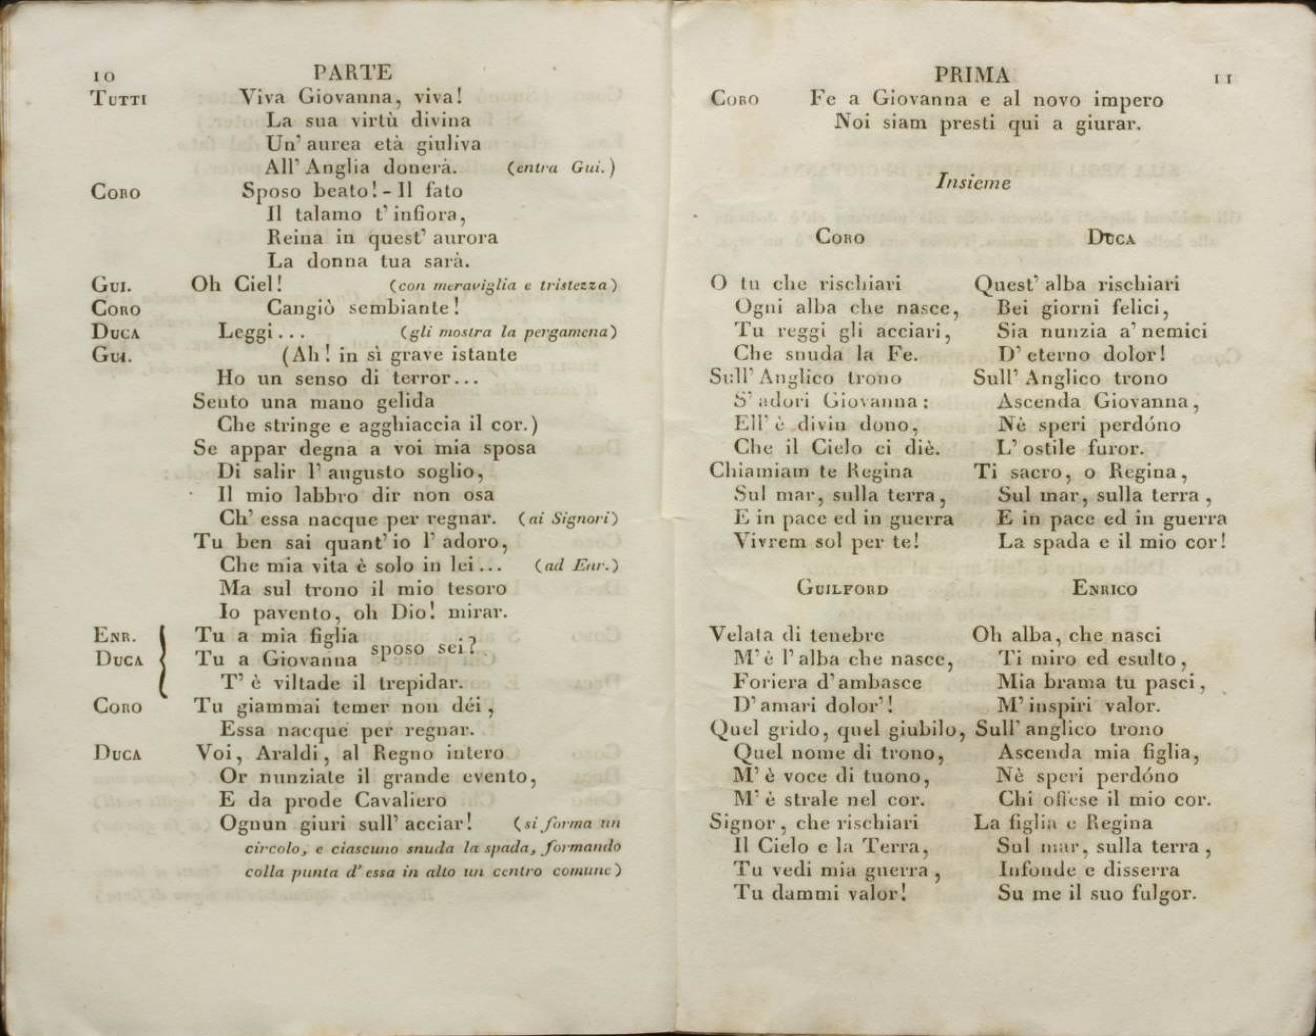 10 PARTE
TUTTI Viva Giovanna, viva!
La sua virtù divina
Un' aurea età giuliva
All' Anglia donerà. (entra Gui.)
CORO Sposo beato! - Il fato
Il talamo t' infiora,
Reina in quest' aurora
La donna tua sarà.
GUI. Oh Ciel! (con meraviglia e tristezza)
CORO Cangiò sembiante!
DUCA Leggi... (gli mostra la pergamena)
GUI. (Ah! in sì grave istante
Ho un senso di terror...
Sento una mano gelida
Che stringe e agghiaccia il cor.)
Se appar degna a voi mia sposa
Di salir l' augusto soglio,
Il mio labbro dir non osa
Ch' essa nacque per regnar. (ai Signori)
Tu ben sai quant' io l' adoro,
Che mia vita è solo in lei... (ad Enr.)
Ma sul trono il mio tesoro
Io pavento, oh Dio! mirar.
ENR. Tu a mia figlia
DUCA Tu a Giovanna sposo sei?
T' è viltade il trepidar.
CORO Tu giammai temer non déi,
Essa nacque per regnar.
DUCA Voi, Araldi, al Regno intero
Or nunziate il grande evento,
E da prode Cavaliero
Ognun giuri sull' acciar! (si forma un
circolo, e ciascuno snuda la spada, formando
colla punta d' essa in alto un centro comune)
PRIMA 11
CORO Fe a Giovanna e al novo impero
Noi siam presti qui a giurar.
Insieme
CORO
O tu che rischiari
Ogni alba che nasce,
Tu reggi gli acciari,
Che snuda la Fe.
Sull' Anglico trono
S' adori Giovanna:
Ell' è divin dono,
Che il Cielo ci diè.
Chiamiam te Regina
Sul mar, sulla terra,
E in pace ed in guerra
Vivrem sol per te!
DUCA
Quest' alba rischiari
Bei giorni felici,
Sia nunzia a' nemici
D' eterno dolor!
Sull' Anglico trono
Ascenda Giovanna,
Nè speri perdóno
L' ostile furor.
Ti sacro, o Regina,
Sul mar, sulla terra,
E in pace ed in guerra
La spada e il mio cor!
GUILFORD
Velata di tenebre
M' è l' alba che nasce,
Foriera d' ambasce
D' amari dolor'!
Quel grido, quel giubilo,
Quel nome di trono,
M' è voce di tuono,
M' è strale nel cor.
Signor, che rischiari
Il Cielo e la Terra,
Tu vedi mia guerra,
Tu dammi valor!
ENRICO
Oh alba, che nasci
Ti miro ed esulto,
Mia brama tu pasci,
M' inspiri valor.
Sull' anglico trono
Ascenda mia figlia,
Nè speri perdóno
Chi offese il mio cor.
La figlia e Regina
Sul mar, sulla terra,
Infonde e disserra
Su me il suo fulgor.